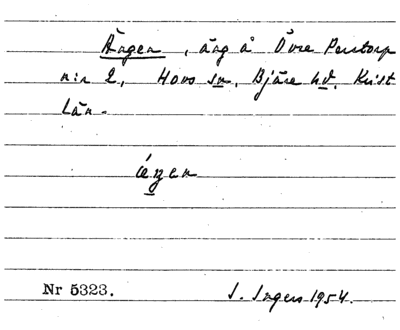 Ängen, äng å Övre Perstorp
n:r 2, Hovs sn, Bjäre hd, Krist
län.
Nr 5323.
I. Ingers 1954.